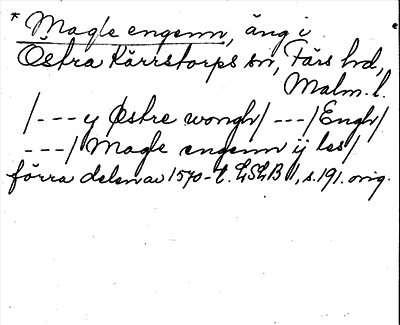 * Magle engenn, äng i
Östra Kärrstorps sn, Färs hd,
Malm. l.
/--- y Østre wongh/ ---/Engh/
---/ Magle engenn ij les/
förra delen av 1570-t. LSLB 1, s. 191. orig.